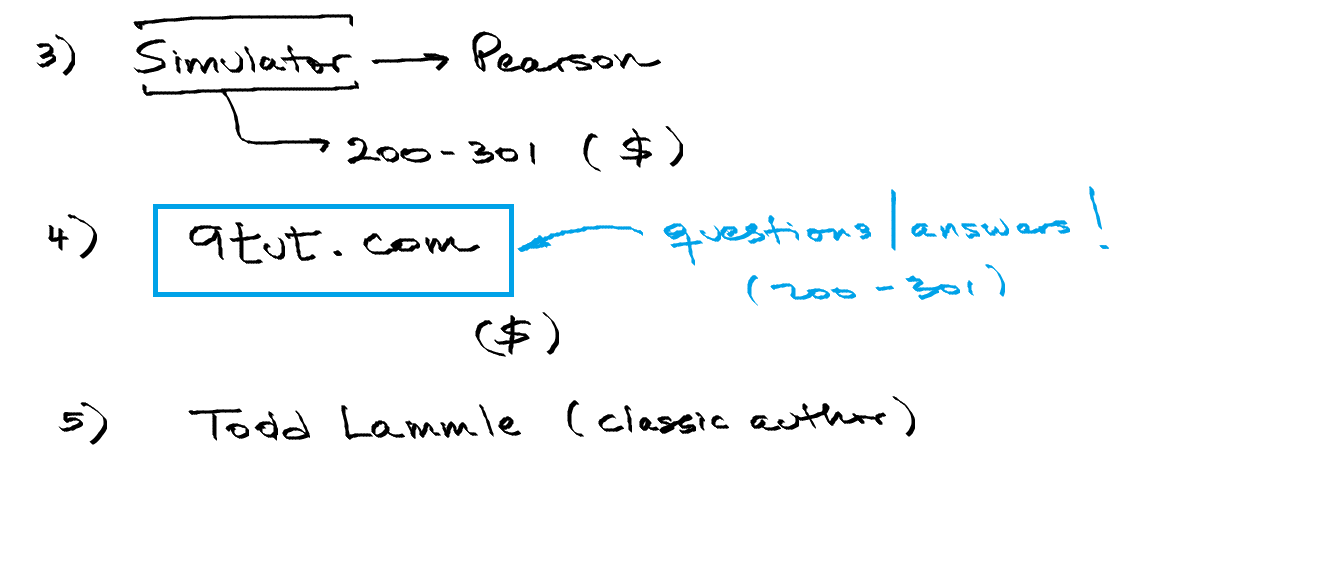 3) Simulator → Pearson
→ 200-301 ($)
4) 9tut.com ← questions/answers!
(200-301)
($)
5) Todd Lammle (classic author)